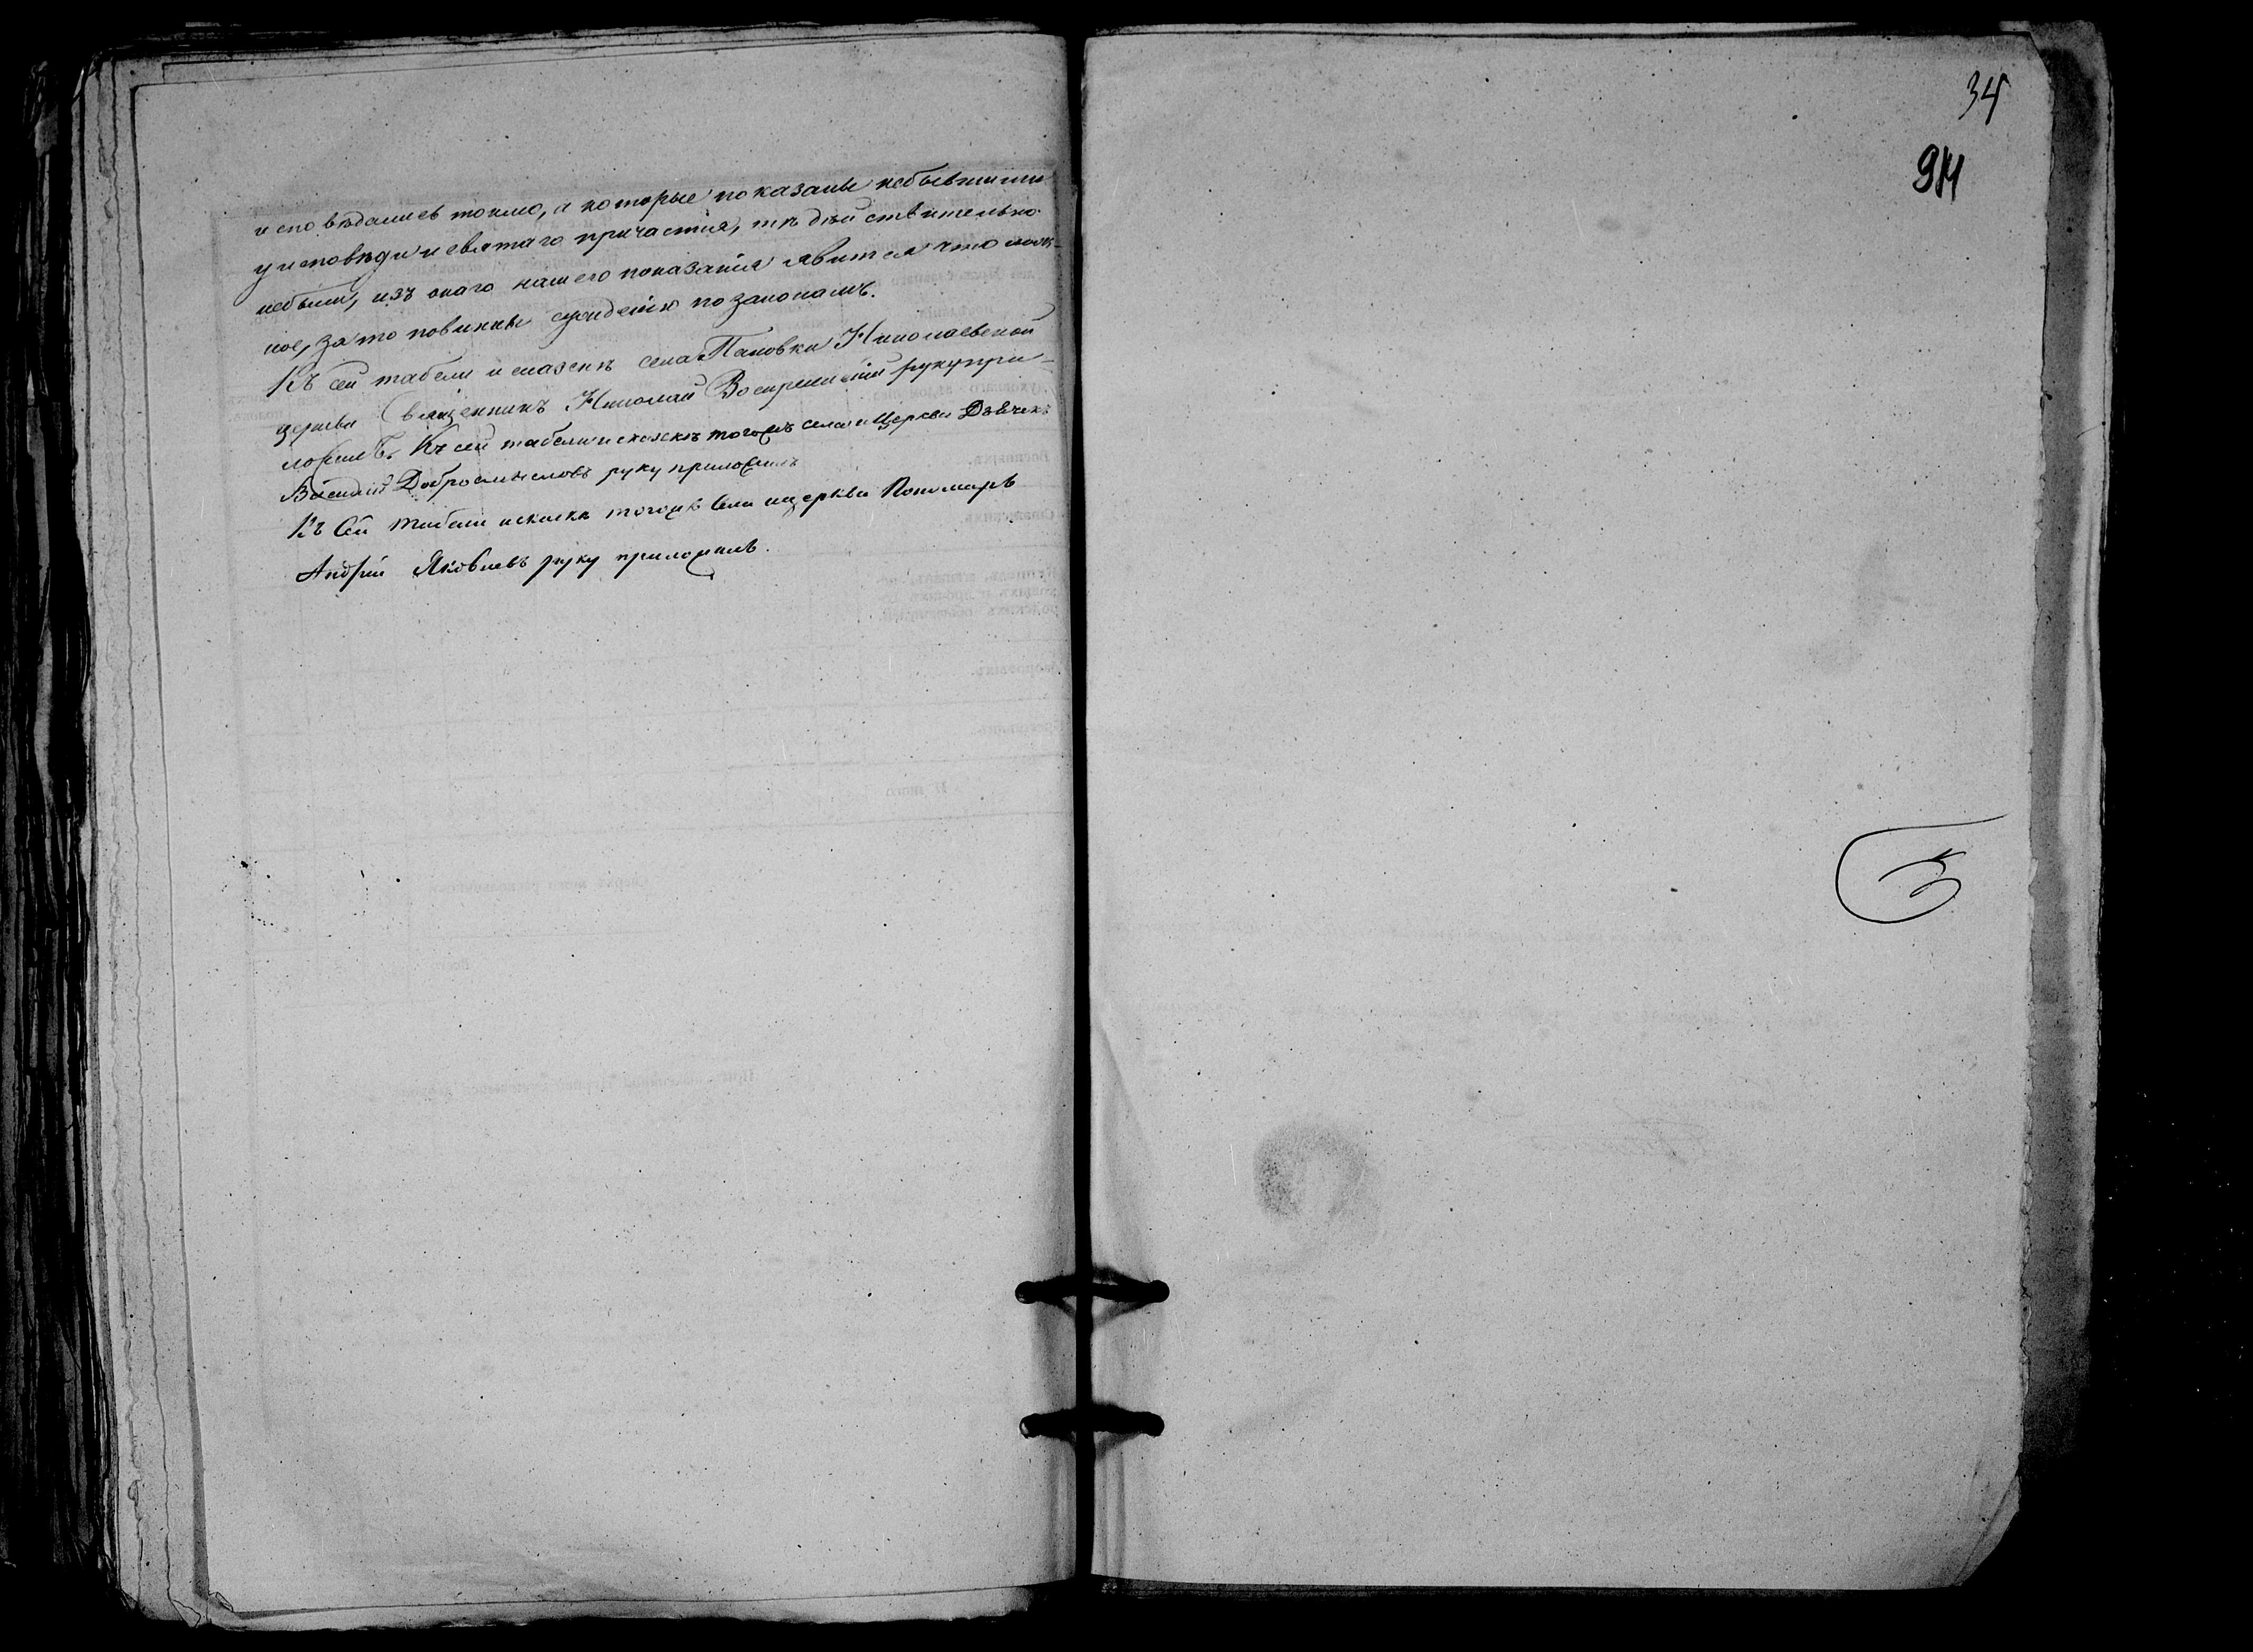 исповѣдались токмо, а которые показаны небывшими
у исповѣди и святаго причастія, тѣ дѣйствительно
небыли, изъ онаго нашего показанія явится что лож-
ное, за то повинны суждению по законамъ.
Къ сей табели и сказкѣ села Пановки Николаевской
церкви Священникъ Николай Воскресенский руку при-
ложилъ. Къ сей табели и сказкѣ тогожъ села и Церкви Дьячекъ
Василий Добросмысловъ руку приложилъ
Къ Сей табели и сказкѣ тогожъ села и церкви Пономарь
Андрей Яковлевъ руку приложилъ.
34